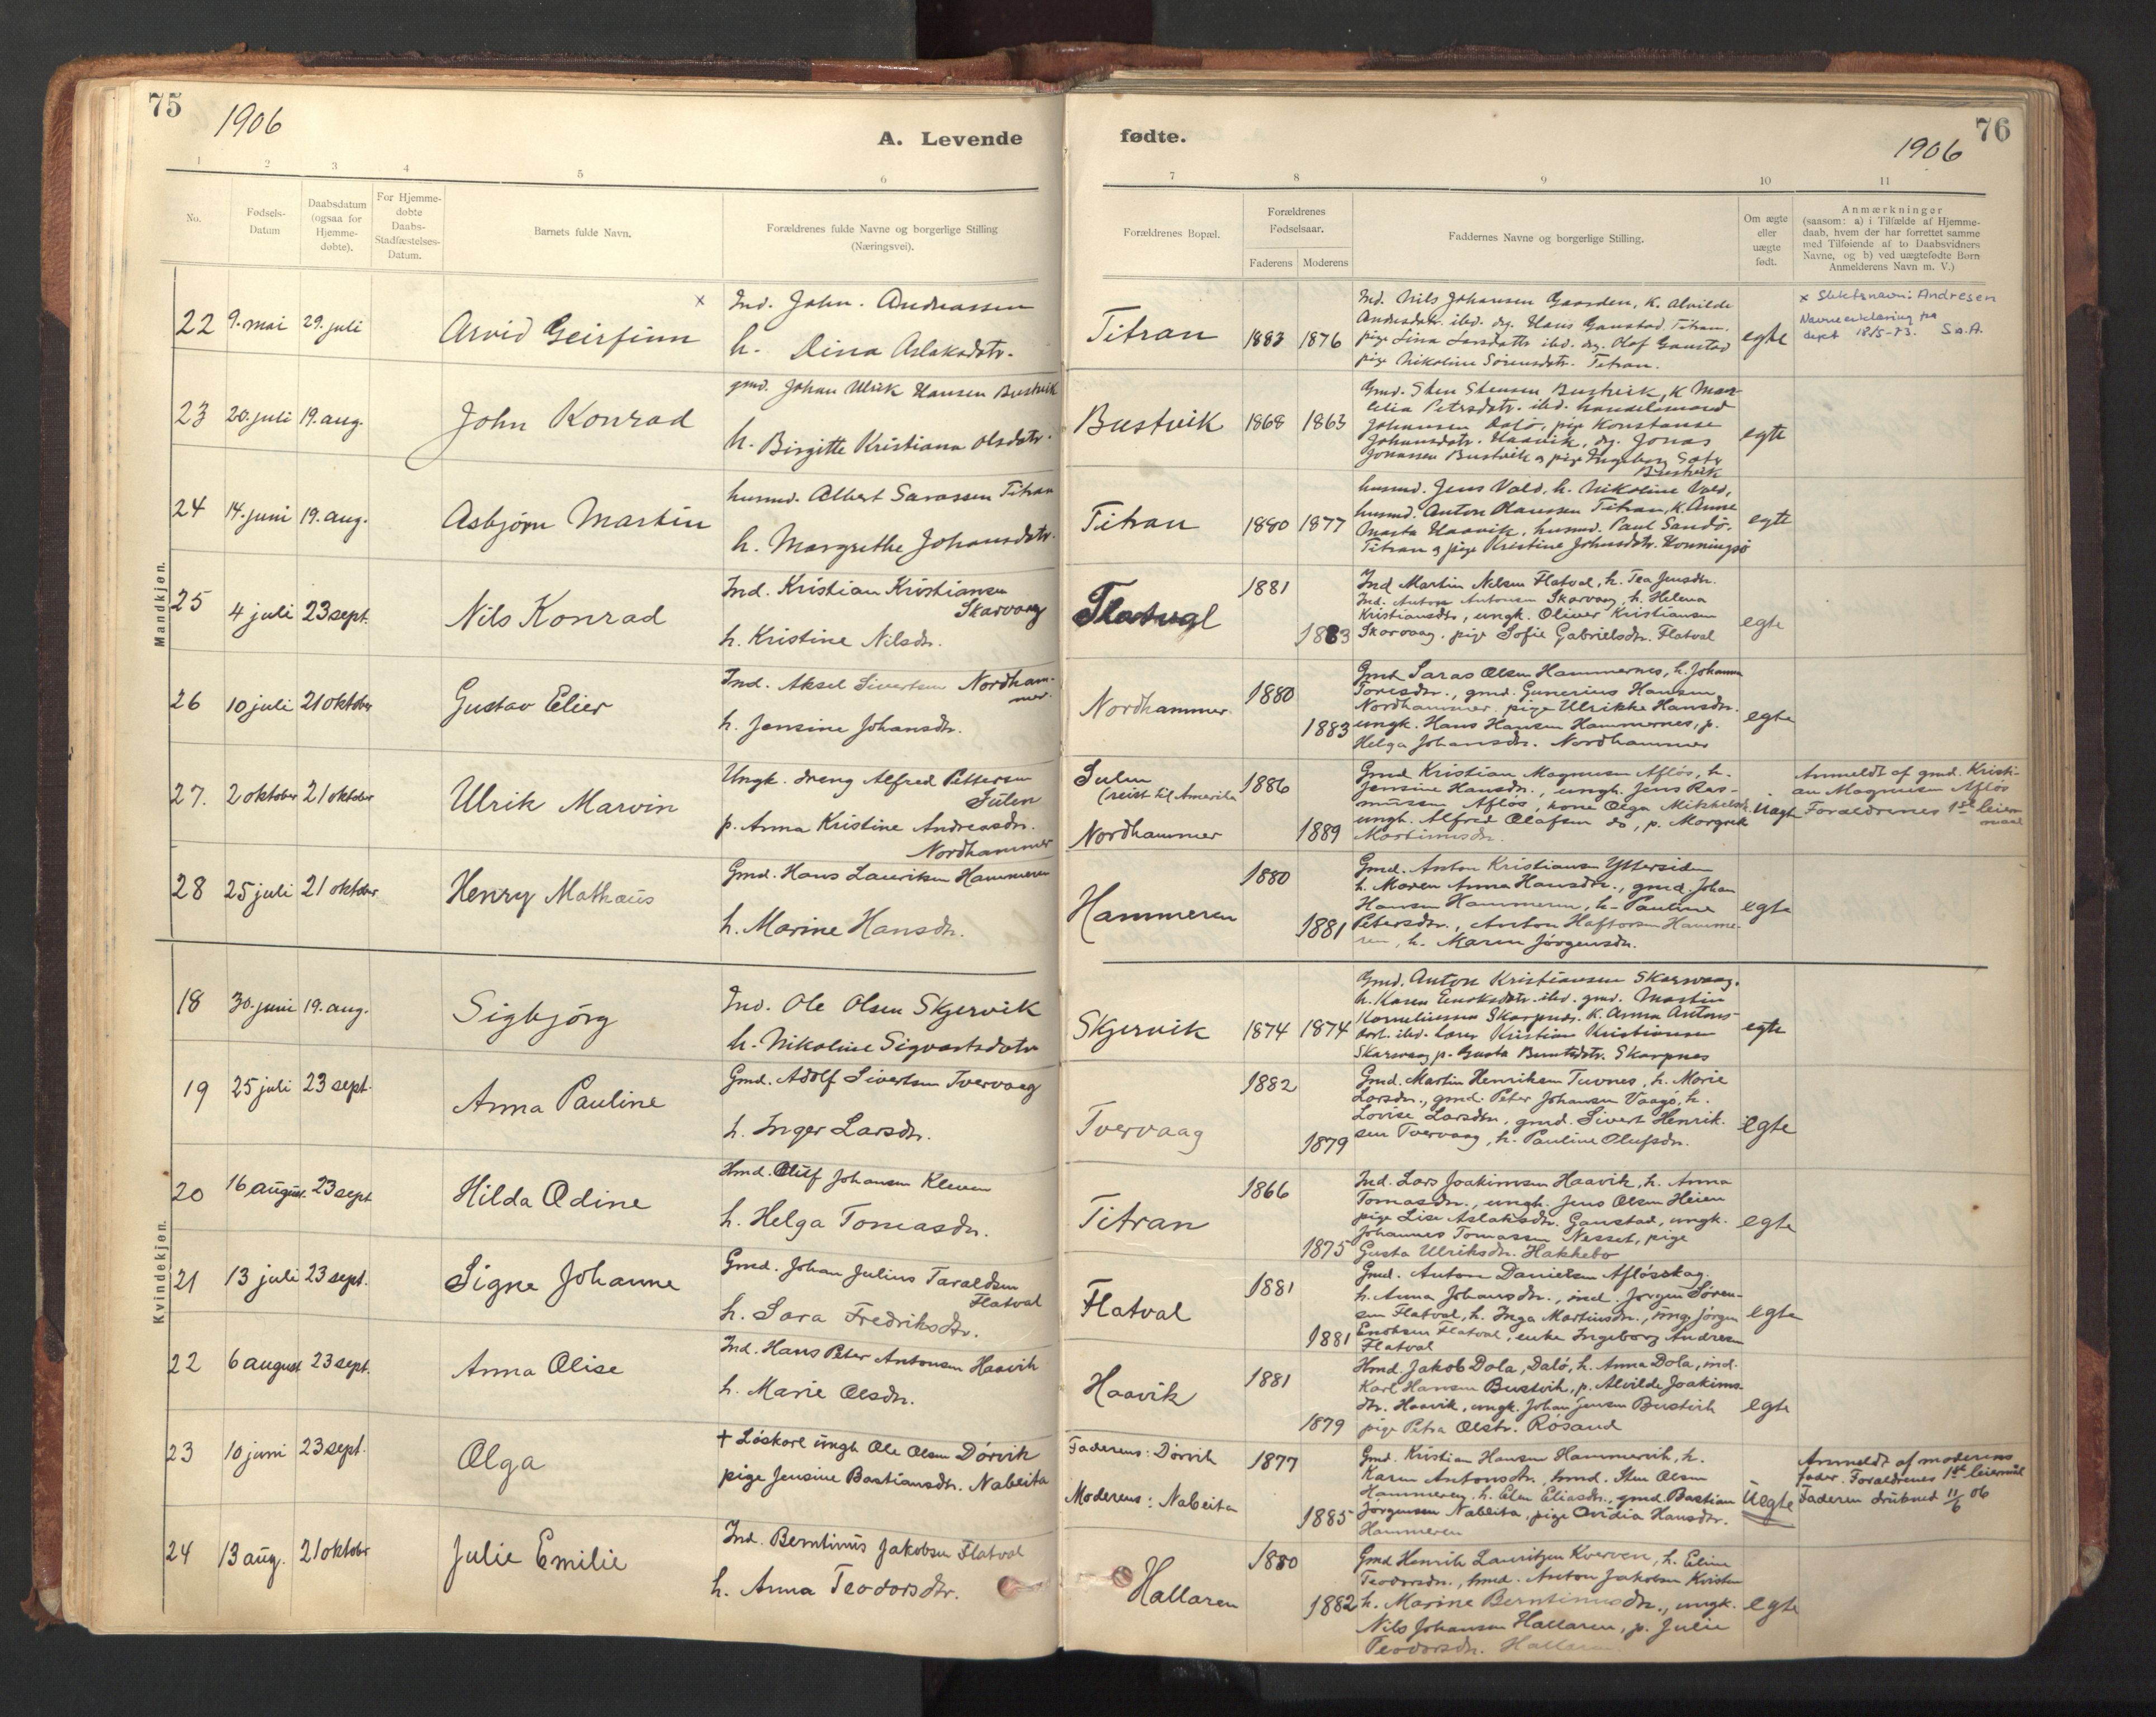 75
1906
A. Levende
fødte.
1906
76
1
2
3
4
5
6
7
8
9
10
11
No.
Fødsels-
Datum
Daabsdatum
(ogsaa for
Hjemme-
døbte).
For Hjemme-
døbte
Daabs-
Stadfæstelses-
Datum.
Barnets fulde Navn.
Forældrenes fulde Navne og borgerlige Stilling
(Næringsvei).
Forældrenes Bopæl.
Forældrenes
Fødselsaar.
Faderens
Moderens
Faddernes Navne og borgerlige Stilling.
Om ægte
eller
uægte
født.
Anmærkninger
(saasom: a) i Tilfælde af Hjemme-
daab, hvem der har forrettet samme
med Tilføiende af to Daabsvidners
Navne, og b) ved uægtefødte Børn
Anmelderens Navn m. V.)
Mandkjøn.
22 9. mai 29. juli Arvid Geirfinn x
Ind. John Andreassen
h. Dina Aslaksdtr.
Titran 1883 1876
Ind. Nils Johansen Gaarden, K. Alvilde
Andersdatr. ibd. dg. Hans Gaustad Titran.
pige Lina Larsdattr ibd. dg. Olof Gaustad
pige Nikoline Sörensdatr. Titran.
egte
x Slektsnavn: Andresen
Navneerklæring fra
dept 18/5-73. S.A.
23 20. juli 19. aug. John Konrad
gmd. Johan Ulrik Hansen Bustvik
h. Birgitte Kristiana Olsdatr.
Bustvik 1868 1863
Gmd. Sten Stensen Bustvik, K Mar
celia Petersdatr. ibd. handelsmand
Johansen Dalö, pige Konstanse
Johansdatr. Haavik, dg. Jonas
Jonassen Bustvik og pige Ingeborg
Bustvik
egte
24 14. juni 19. aug. Asbjørn Martin
husmd. Albert Sarassen Titran
h. Margrethe Johansdatr.
Titran 1880 1877
husmd. Jens Vold, h. Nikoline Vold,
husmd. Anton Hanssen Titran, K. Anne
Marta Haavik, husmd. Paul Sandö.
Titran og pige Kristine Johnsdatr. Konningsö
egte
25 4 juli 23 sept. Nils Konrad
Ind. Kristian Kristiansen
Skarvaag
h. Kristine Nilsdtr.
Flatval 1881 1883
Ind Martin Nelsen Flatval, h. Tea Jensdtr.
Ind. Anton Antonsen Skarvaag, h. Helena
Kristiansdtr, ungk. Oliver Kristiansen
Skarvaag, pige Sofie Gabrielsdtr. Flatval
egte
26 10 juli 21 oktober Gustav Elier
Ind. Aksel Sivertsen Nordham-
mer.
h. Jensine Johansdtr.
Nordhammer. 1880 1883
Gmd Saras Olsen Hammernes, h. Johanna
Toresdtr., gmd. Gunerius Hansen
Nordhammer pige Ulrikke Hansdtr.
ungk. Hans Hansen Hammernes, p.
Helga Johansdtr. Nordhammer
egte
27. 2 oktober 21 oktober Ulrik Marvin
Ungk. dreng Alfred Pettersen
Sulen
p. Anna Kristine Andreasdtr.
Nordhammer
Sulen
(reist til Amerika
Nordhammer
1886 1889
Gmd Kristian Magnusen Aflös, h.
Jensine Hansdtr., ungk. Jens Ras-
mussen Aflös, kone Olga Mikkelsdtr.
ungk. Alfred Olafsen do, p. Margrete
Martinusdtr.
Uægte
Anmeldt af gmd. Kristi-
an Magnusen Aflös
Forældrenes 1ste leier-
maal
28 25 juli 21 oktober Henry Mathæus
Gmd. Hans Lauritsen Hammeren
h. Marine Hansdtr.
Hammeren 1880 1881
Gmd. Anton Kristiansen Yttersiden
h. Maren Anna Hansdtr., gmd. Johan
Hansen Hammeren, h. Pauline
Petersdtr., Anton Haftorsen Hamme-
ren, h. Maren Jörgensdtr.
egte
Kvindekjøn.
18 30. juni 19. aug. Sigbjörg
Ind. Ole Olsen Skjervik
h. Nikoline Sigvartsdatr
Skjervik 1874 1874
Gmd. Anton Kristiansen Skarvaag.
h. Karen Enoksdatr. ibd. gmd. Martin
Korneliussen Skarpnes. K. Anna Antons-
datt. ibd. lærer Kristian Kristiansen
Skarvaag p. Gusta Berntsdtr. Skarpnes
egte
19 25 juli 23 sept. Anna Pauline
Gmd. Adolf Sivertsen Tvervaag
h. Inger Larsdtr.
Tvervaag 1882 1879
Gmd. Martin Henriksen Tuvnes, h. Marie
Larsdtr., gmd. Peter Johansen Vaagö, h.
Lovise Larsdtr, gmd. Sivert Henrik-
sen Tvervaag, h. Pauline Olufsdtr.
egte
20 16 august 23 sept Hilda Odine
Hmd. Oluf Johansen Kleven
h. Helga Tomasdtr.
Titran 1866 1875
Ind. Lars Joakimsen Haavik, h. Anna
Tomasdtr., ungk. Jens Olsen Heien
pige Lise Aslaksdtr. Gaustad, ungk.
Johannes Tomassen Nesset, pige
Gusta Ulriksdtr. Hakkebo
egte
21 13 juli 23 sept. Signe Johanne
Gmd. Johan Julius Taraldsen
Flatval
h. Sara Fredriksdtr.
Flatval 1881 1881
Gmd. Anton Danielsen Aflösskag.
h. Anna Johansdtr., ind. Jörgen Sören-
sen Flatval, h. Inga Martinsdtr., ung. Jörgen
Enoksen Flatval, enke Ingeborg Andresen
Flatval
egte
22 6 august 23 sept. Anna Olise
Ind. Hans Peter Antonsen Haavik
h. Marie Olsdtr.
Haavik 1881 1879
Hmd. Jakob Dola, Dalö, h. Anna Dola, ind.
Karl Hansen Bustvik, p. Alvilde Joakims-
dtr. Haavik, ungk. Johan Jensen Bustvik
pige Petra Olsdtr. Rösand
egte
23 10 juni 23 sept. Olga
+ Löskarl ungk Ole Olsen Dörvik
pige Jensine Bastiansdtr. Nabeita
Faderens: Dörvik
Moderens: Nabeita
1877 1885
Gmd. Kristian Hansen Hammervik, h.
Karen Antonsdtr., hmd. Sten Olsen
Hammeren, h. Elen Eliasdtr., gmd. Bastian
Jørgensen Nabeita, pige Ovidia Hansdtr.
Hammeren
Uegte
Anmeldt af moderens
fader. Forældrenes 1ste leiermål
Faderen druknet 11/6 06
24 13 aug. 21 oktober Julie Emilie
Ind. Berntinus Jakobsen Flatval
h. Anna Teodorsdtr.
Hallaren 1880 1882
Gmd Henrik Lauritzen Kverven, h. Eline
Teodorsdtr., hmd. Anton Jakobsen Kvisten
h. Marine Berntinusdtr., ungk.
Nils Johansen Hallaren, p. Julie
Teodorsdtr. Hallaren
egte